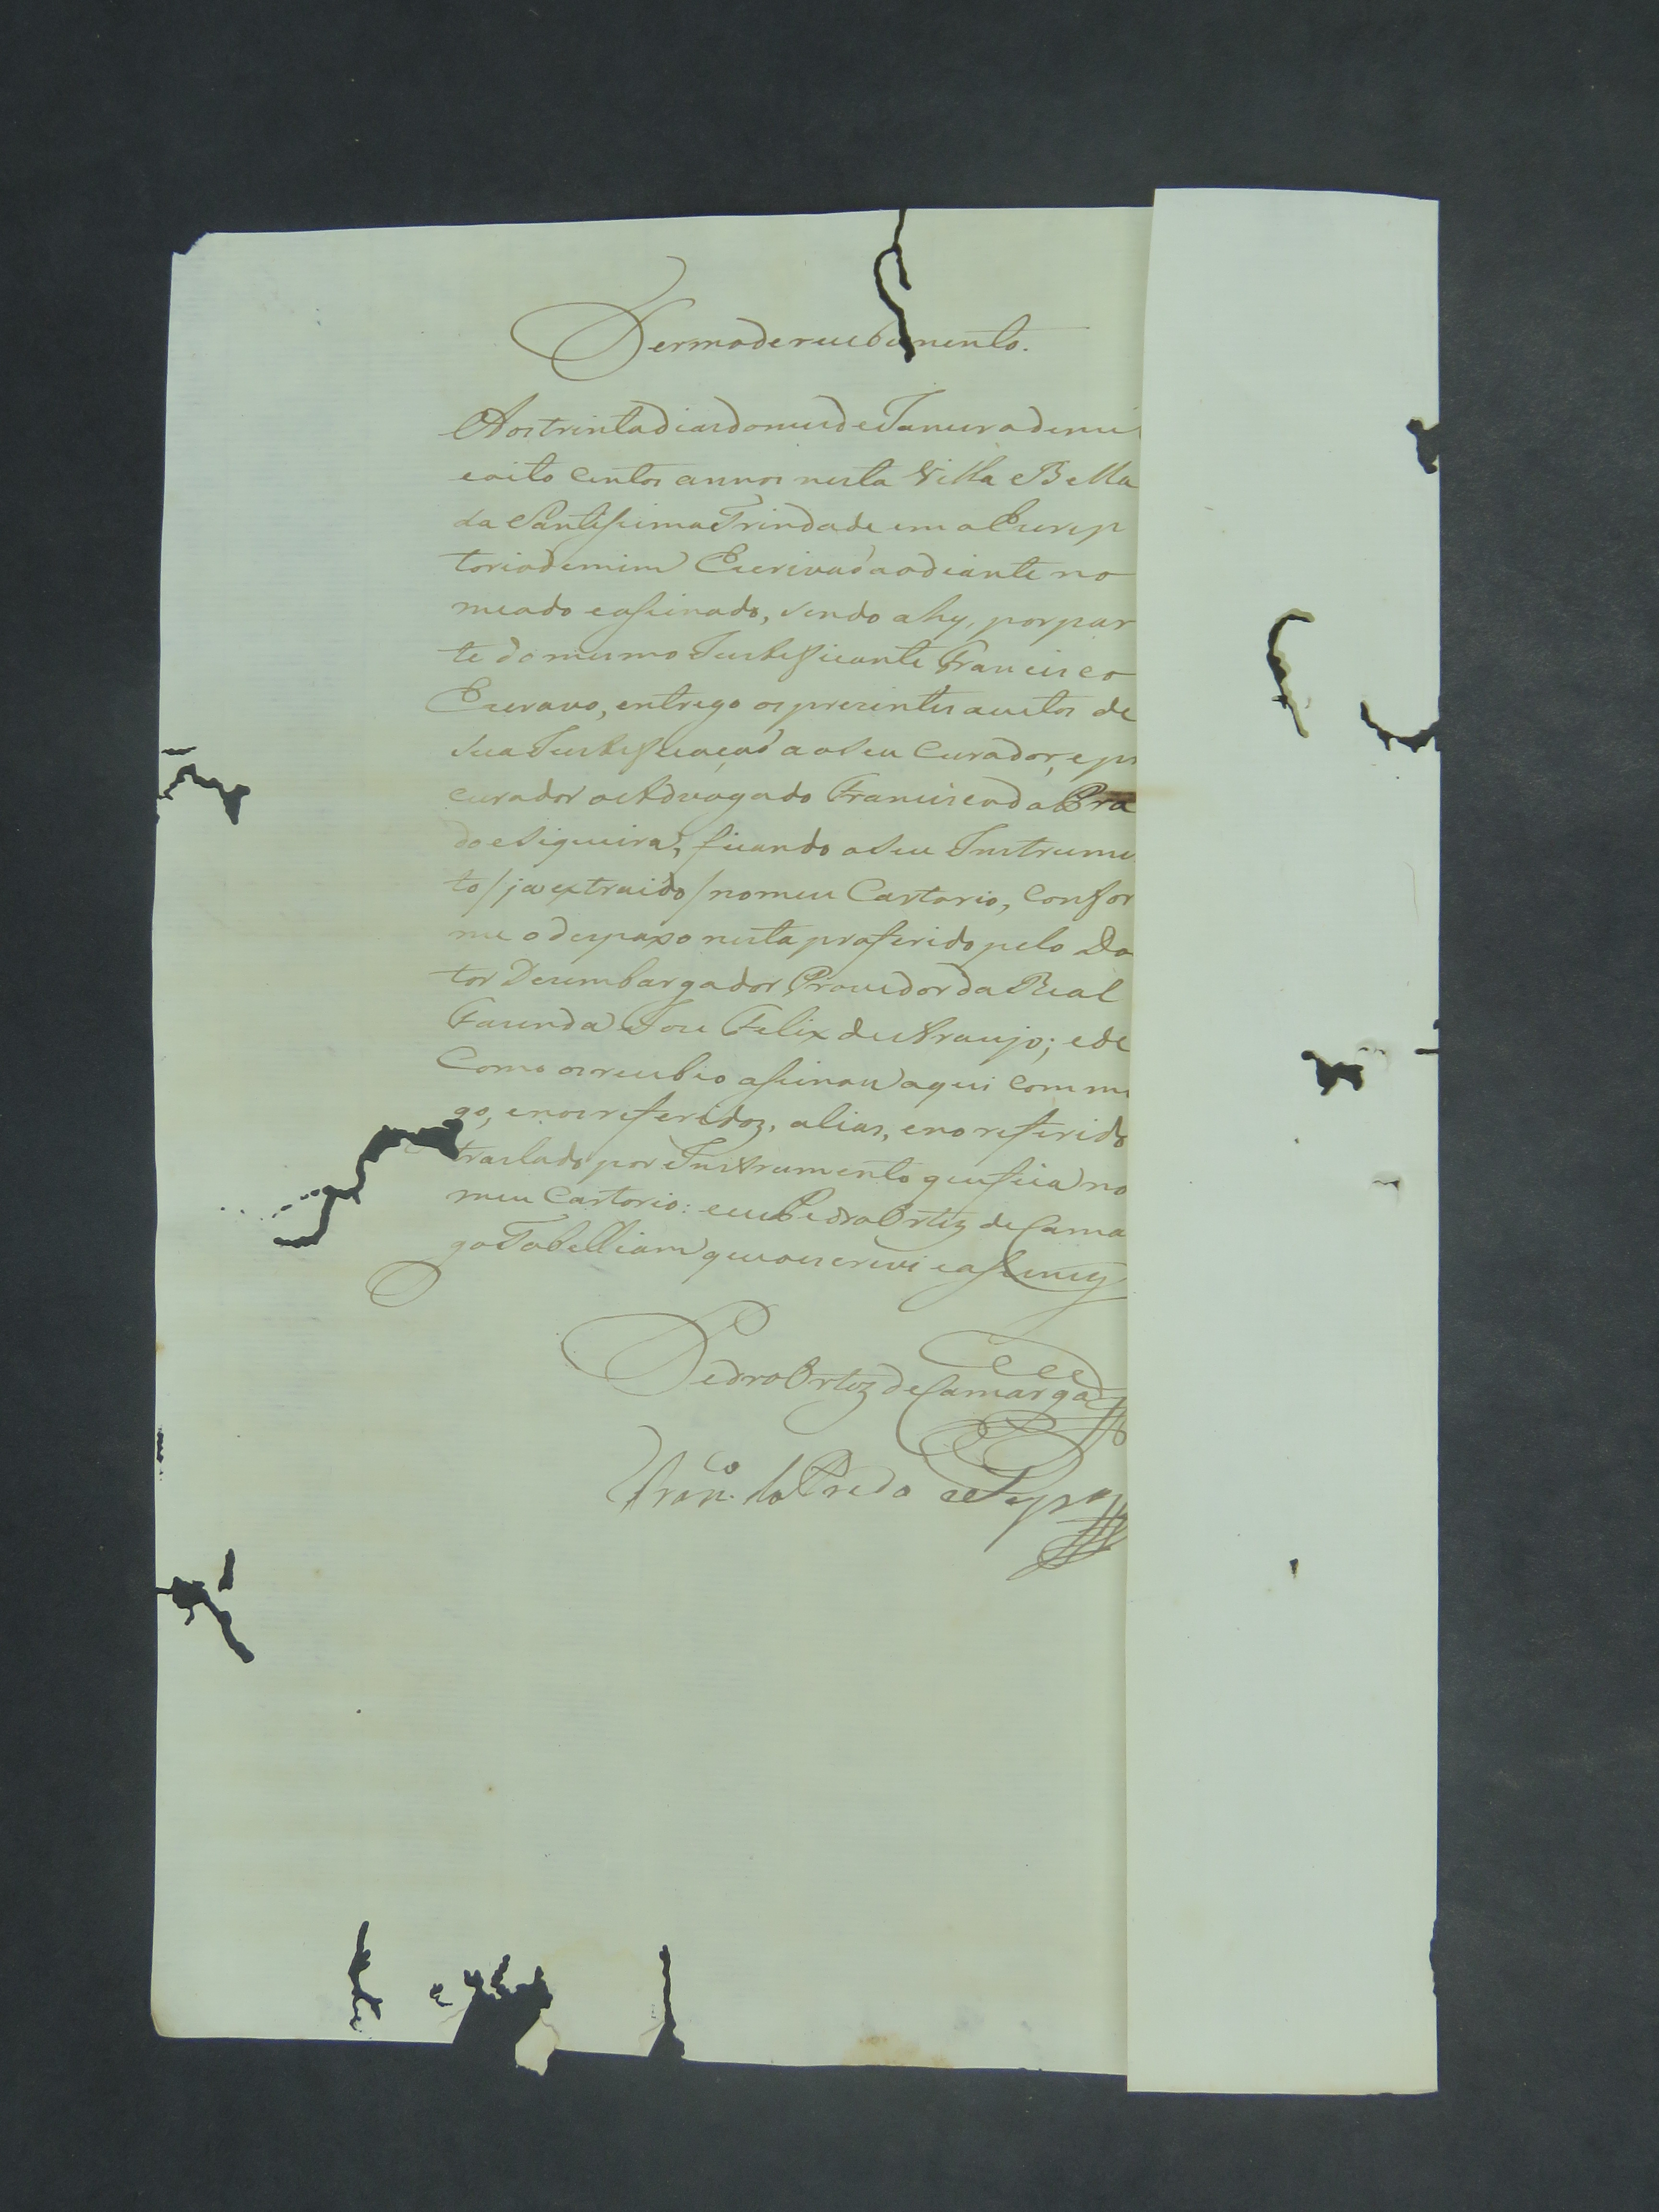 Termo de recebimento.
Aos trinta dias do mes de Janeiro de mil
e oito centos annos nesta Villa Bella
da Santissima Trindade em o Escrip
torio de mim Escrivaõ ao diante no
meado e assinado, sendo ahy, por par
te do mesmo Justificante Francisco
Escravo, entrego os prezentes autos de
sua Justificaçaõ ao seu Curador, e pro
curador o Advogado Francisco da Pra
do e Siqueira, ficando o seu Instrume
to / ja extraido / no meu Cartorio, confor
me o despaxo nesta proferido pelo Do
tor Desembargador Provedor da Real
Fasenda Jose Felix de Araujo; e de
Como os recebeo assinou aqui commi
go, e nos referidos, alias, e no referido
traslado por Instrumento que fica no
meu Cartorio: e eu Pedro Ortiz de Cama
go Tabelliam que o escrevi e assiney
Pedro Ortiz de Camargo
Fran.co do Prado e